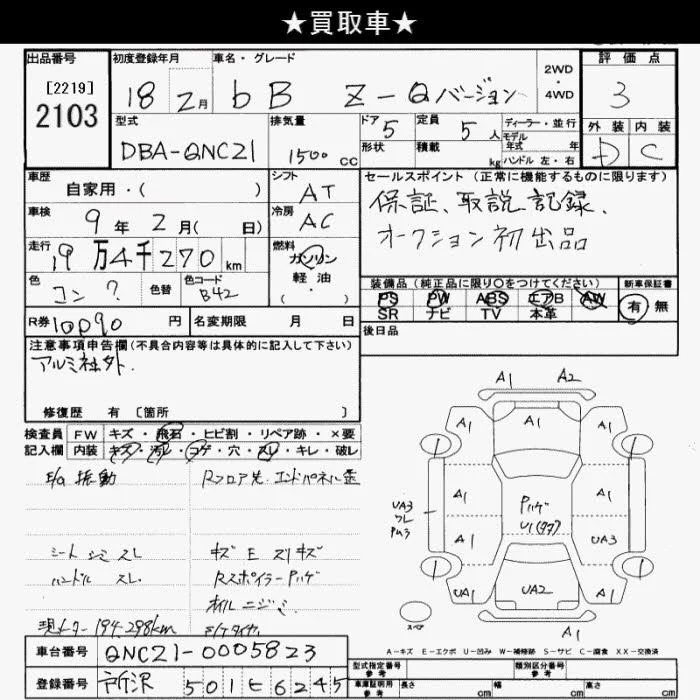 ★買取車★
出品番号
[2219]
2103
初度登録年月
18 2月
車名・グレード
bB Z-Qバージョン
2WD
・
4WD
評価点
3
外装 内装
D C
型式
DBA-QNC21
排気量
1500cc
ドア 5
形状
定員 5人
積載 kg
ディーラー・並行
モデル
年式 年
ハンドル 左・右
車歴
自家用・( )
シフト
AT
車検
9年2月( 日)
冷房
AC
走行
19万4千270km
燃料
ガソリン
軽油
( ・ )
色
コン ?
色替
色コード
B42
R券 10090円
名変期限 月 日
セールスポイント(正常に機能するものに限ります)
保証、取説、記録、
オークション初出品
装備品(純正品に限り○をつけてください)
PS PW ABS エアB AW
SR ナビ TV 本革
新車保証書
有 無
後日品
注意事項申告欄(不具合内容等は具体的に記入して下さい)
アルミ社外.
修復歴 有 [箇所 ]
検査員
記入欄
FW キズ・飛石・ヒビ割・リペア跡・×要
内装 キズ・汚レ・コゲ・穴・スレ・キレ・破レ
E/g 振動
Rフロア先.エンドパネル歪
シート シミ スレ
キズ E スリキズ
ハンドル スレ.
Rスポイラー Pハゲ
オイルニジミ
現メーター 194,298km
A1 A2
A1 A1
A1 A1
UA3
ワレ
Pハゲ
U1(タタ)
A1 UA3
UA1 UA2 A1
A1
スペア
A-キズ E-エクボ U-凹み W-補修跡 S-サビ C-腐食 XX-交換済
車台番号 QNC21-0005823
登録番号 所沢 501 ヒ 6245
型式指定番号
参考
類別区分番号
参考
車庫証明用
参考
長さ cm 幅 cm 高さ cm